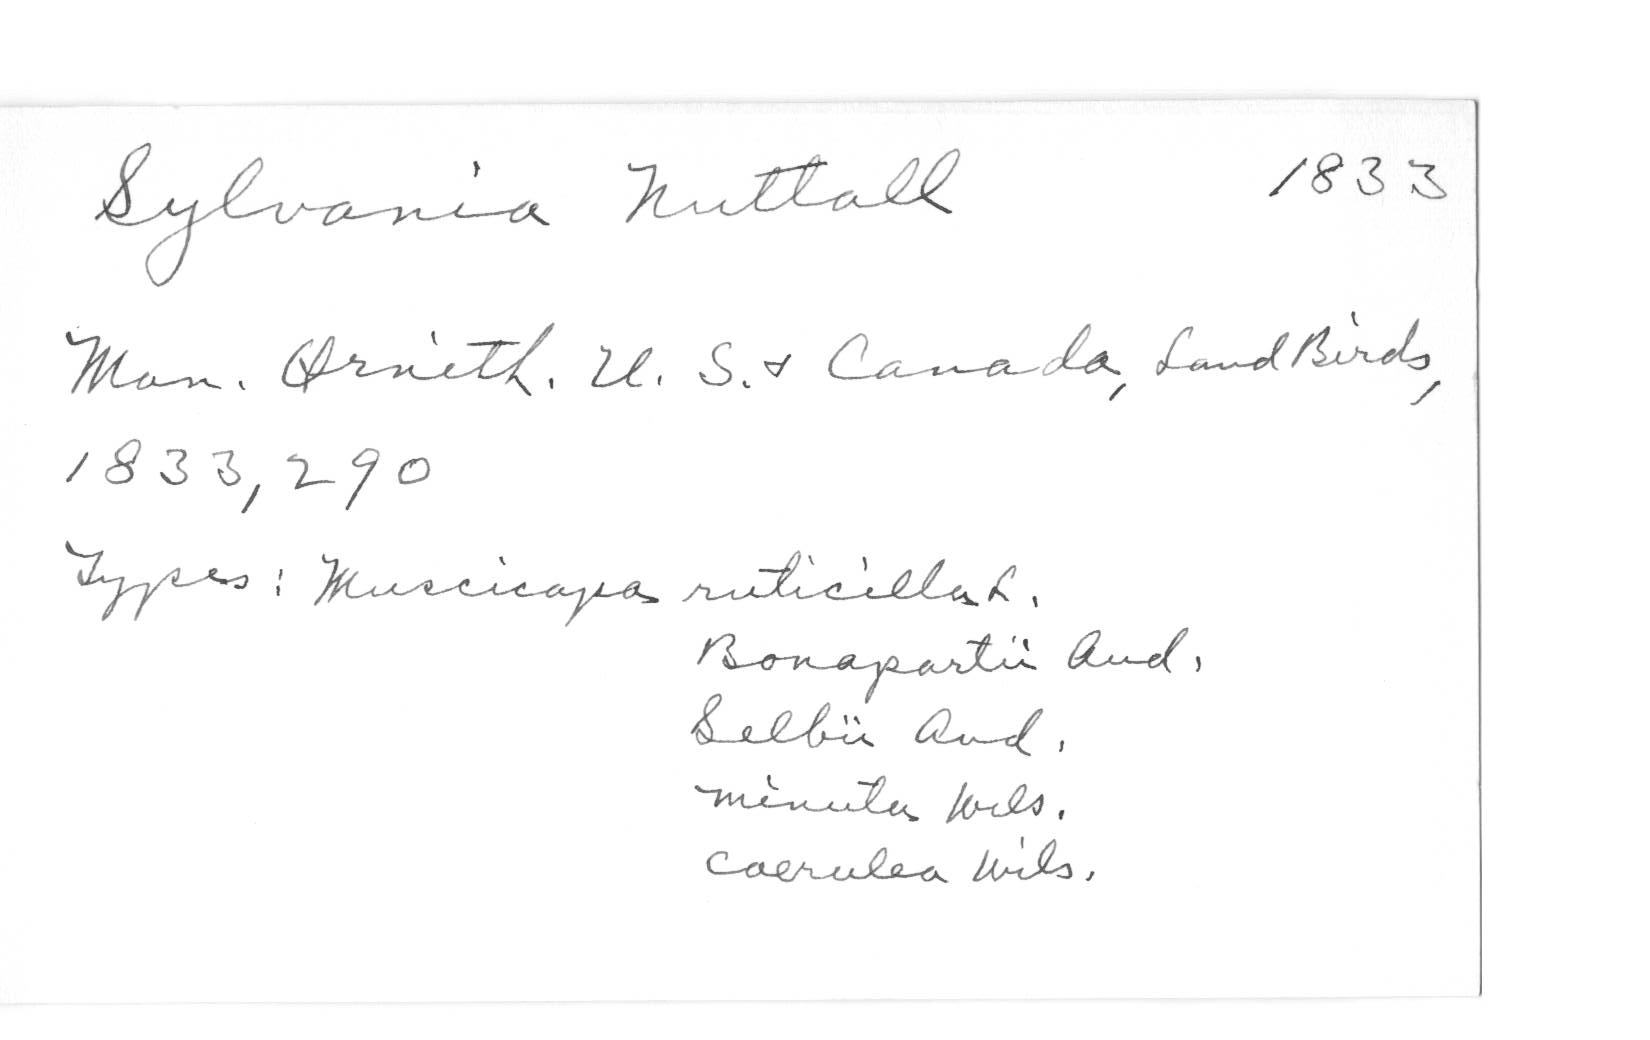 Sylvania Nuttall 1833
Man. Ornith. U. S. & Canada, Land Birds,
1833, 290
Types: Muscicapa ruticilla L.
Bonapartii Aud.
Selbii Aud.
minuta Wils.
caerulea Wils.